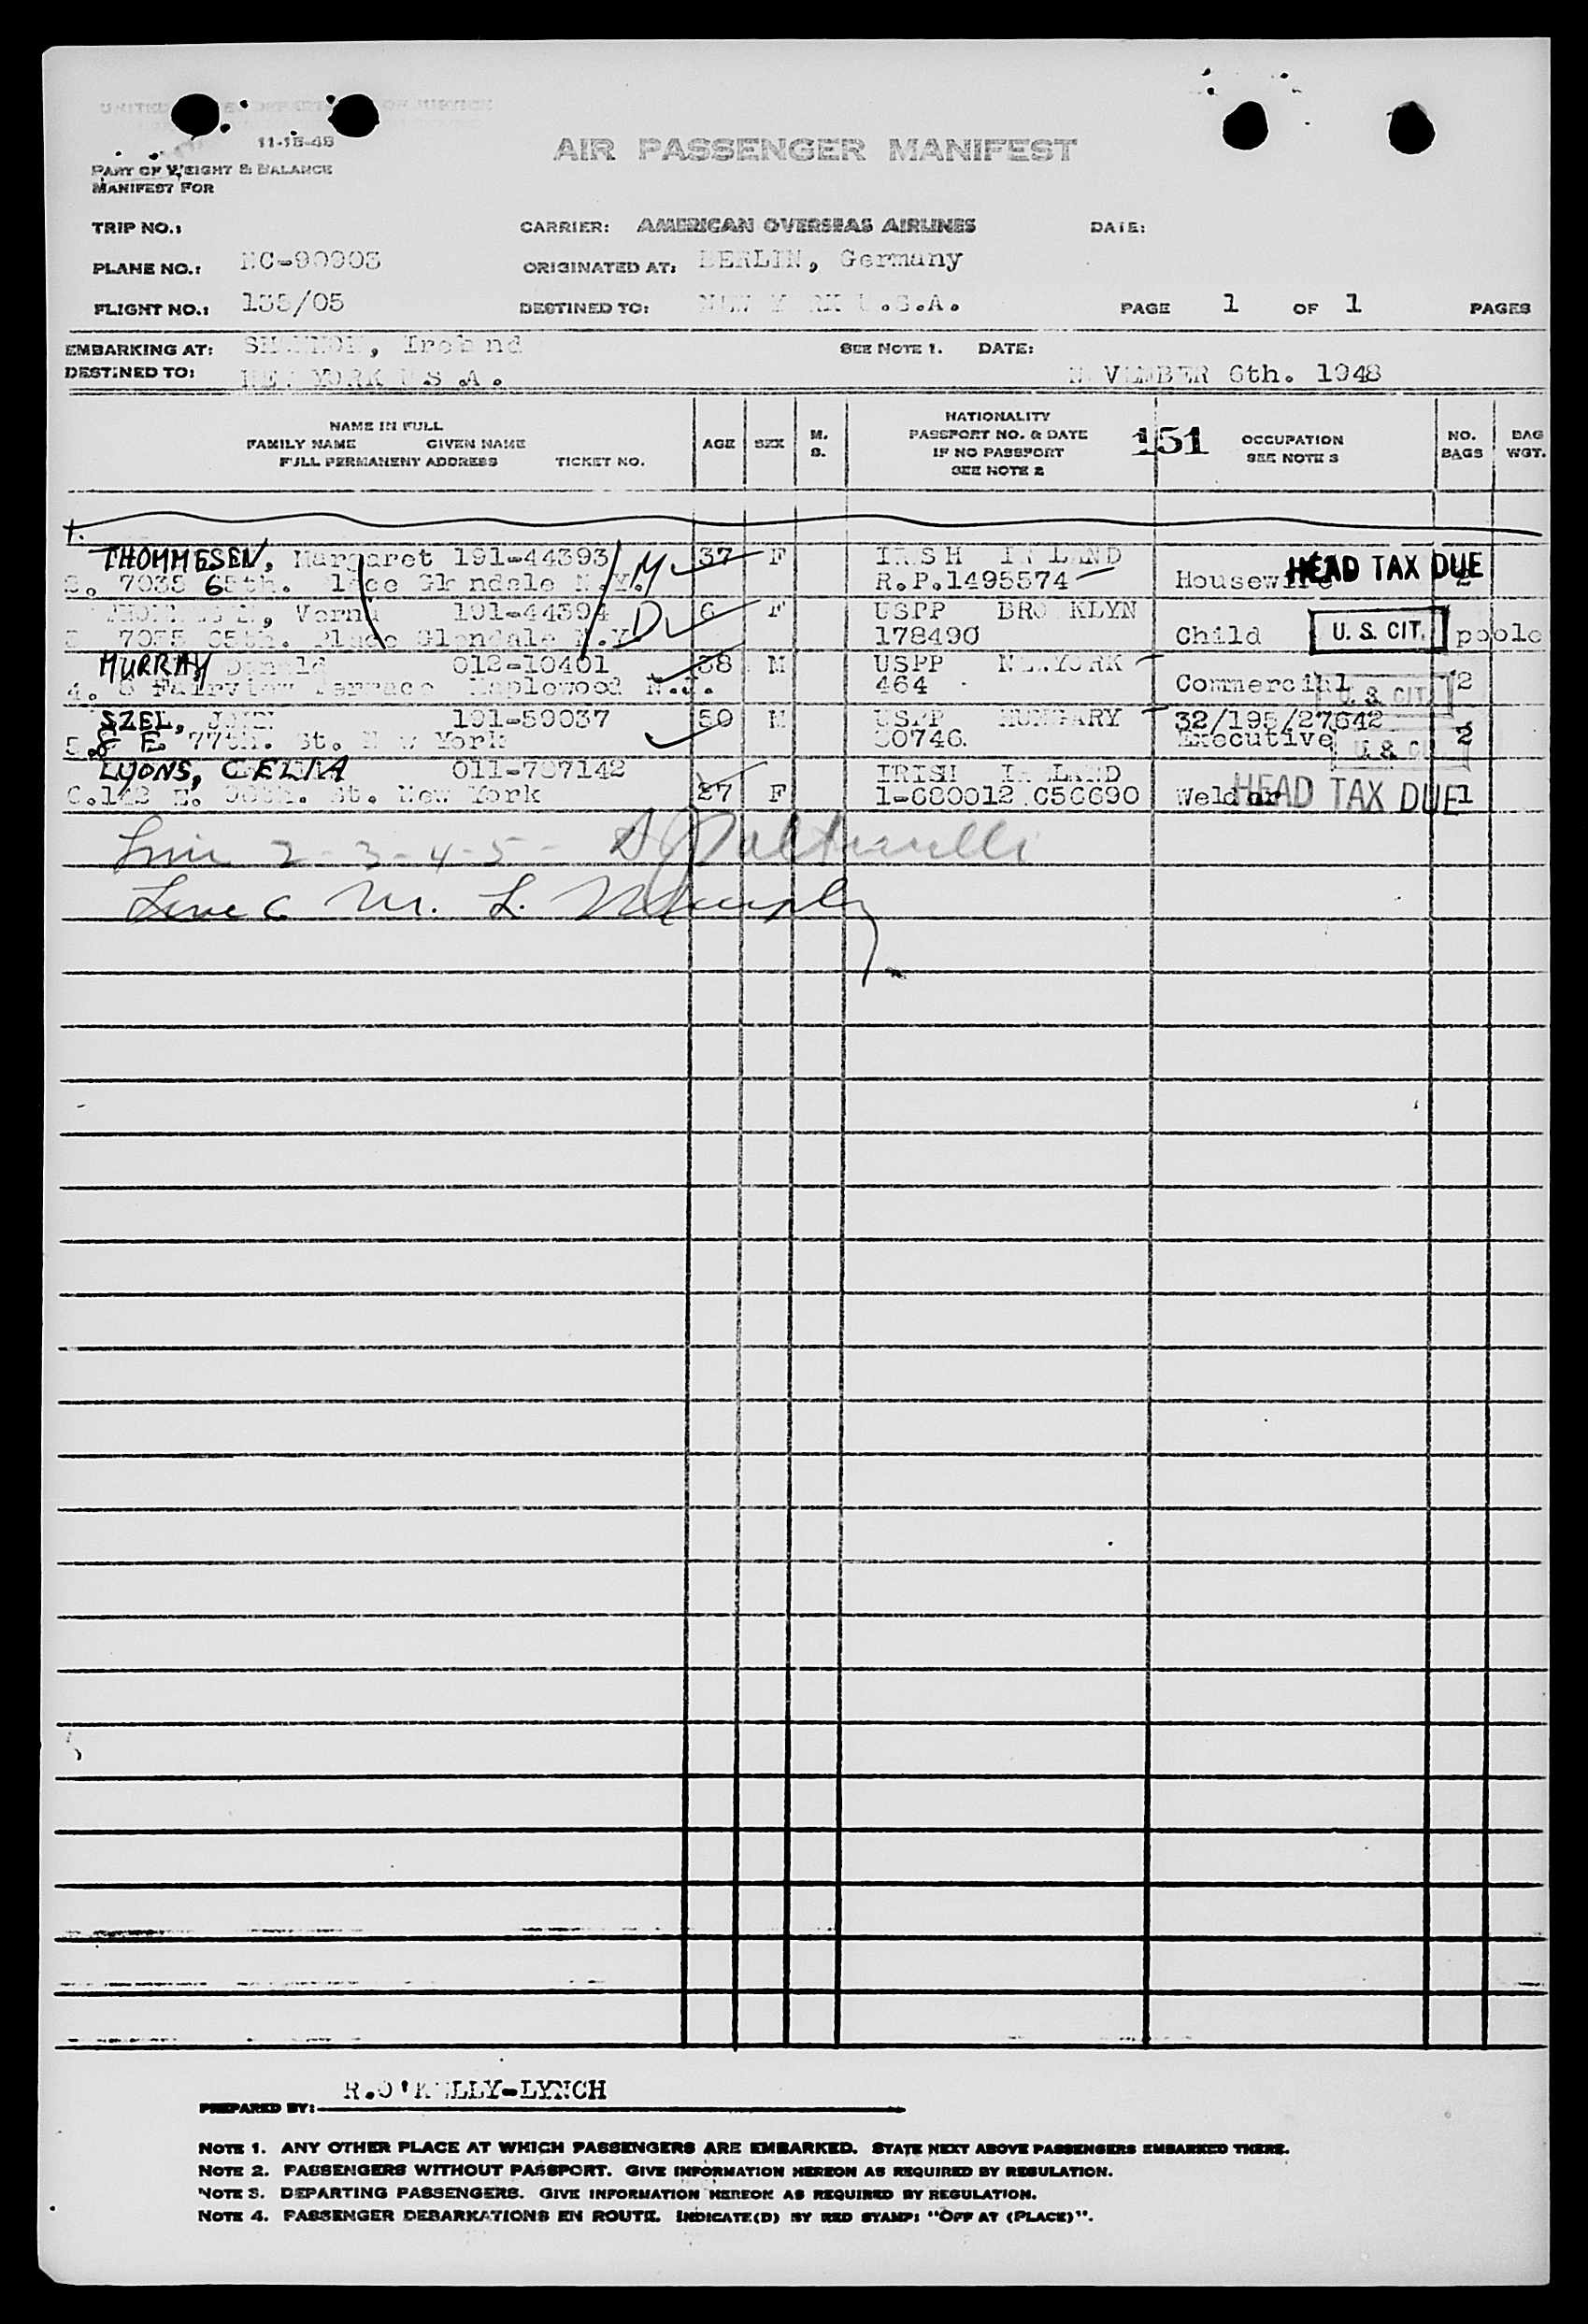 11-18-48
AIR PASSENGER MANIFEST
PART OF WEIGHT & BALANCE
MANIFEST FOR
TRIP NO.: CARRIER: AMERICAN OVERSEAS AIRLINES DATE:
PLANE NO.: NC-90903 ORIGINATED AT: BERLIN, Germany
FLIGHT NO.: 135/05 DESTINED TO: NEW YORK U.S.A. PAGE 1 OF 1 PAGES
EMBARKING AT: SHANNON, Ireland SEE NOTE 1. DATE:
DESTINED TO: NEW YORK U.S.A. NOVEMBER 6th. 1948
NAME IN FULL
FAMILY NAME GIVEN NAME
FULL PERMANENT ADDRESS TICKET NO.
AGE SEX M. S.
NATIONALITY
PASSPORT NO. & DATE
IF NO PASSPORT
SEE NOTE 2
151
OCCUPATION
SEE NOTE 3
NO. BAGS BAG WGT.
1.
THOMMESEN, Margaret 191-44393 M 37 F IRISH IRELAND HEAD TAX DUE
7035 65th. Place Glendale N.Y. R.P.1495574 Housewife 2
Verna 191-44394 D 6 F USPP BROOKLYN
7035 65th. Place Glendale N.Y. 178490 Child U. S. CIT. poole
MURRAY Donald 012-10401 38 M USPP NEWYORK
4. 8 Fairview Terrace Maplewood N.J. 464 Commercial U. S. CIT. 2
SZEL, JOHN 191-59037 50 M USPP HUNGARY 32/195/27642
5. 8 E. 77th. St. New York 30746. Executive U. S. CIT. 2
LYONS, CELIA 011-787142 IRISH IRELAND
6.142 E. St. New York 27 F 1-680012 C56690 Weldor HEAD TAX DUE 1
Line 2-3-4-5-
Line 6 M. L. Murphy
PREPARED BY: R.O'KELLY-LYNCH
NOTE 1. ANY OTHER PLACE AT WHICH PASSENGERS ARE EMBARKED. STATE NEXT ABOVE PASSENGERS EMBARKED THERE.
NOTE 2. PASSENGERS WITHOUT PASSPORT. GIVE INFORMATION HEREON AS REQUIRED BY REGULATION.
NOTE 3. DEPARTING PASSENGERS. GIVE INFORMATION HEREON AS REQUIRED BY REGULATION.
NOTE 4. PASSENGER DEBARKATIONS EN ROUTE. INDICATE(D) BY RED STAMP: "OFF AT (PLACE)".